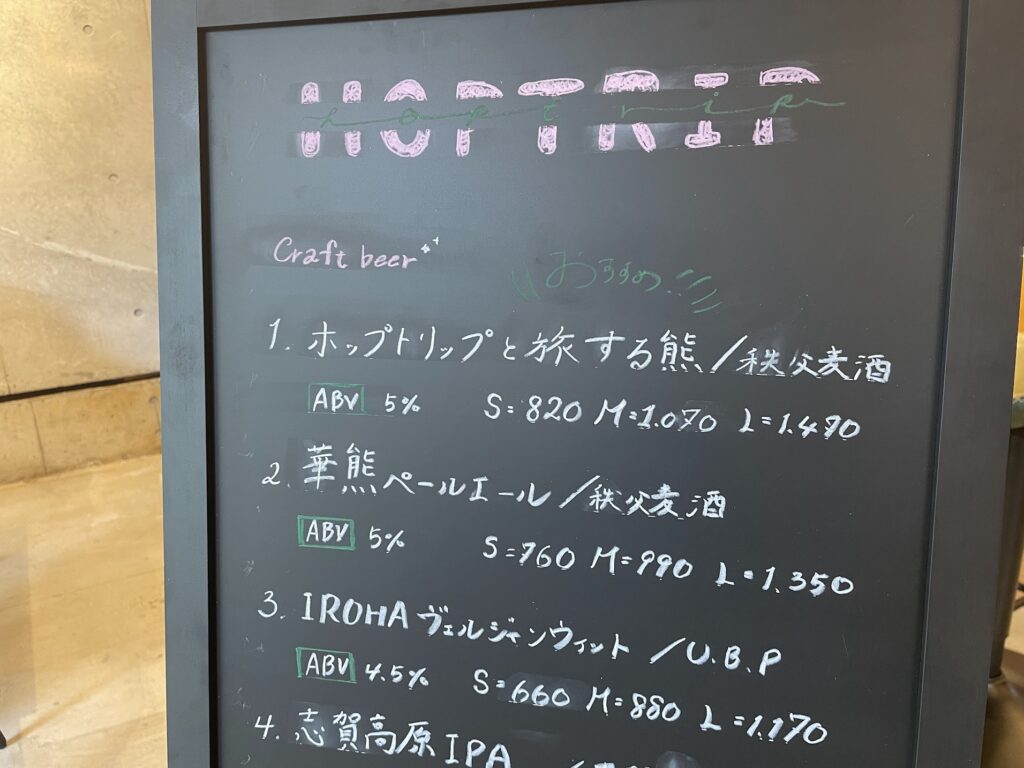 HOPTRIP
hoptrip
Craft beer
おすすめ!!
1. ホップトリップと旅する熊/秩父麦酒
ABV 5% S=820 M=1.070 L=1.470
2. 華熊ペールエール/秩父麦酒
ABV 5% S=760 M=990 L=1.350
3. IROHA ヴェルジャンウィット /U.B.P
ABV 4.5% S=660 M=880 L=1.170
4. 志賀高原IPA /